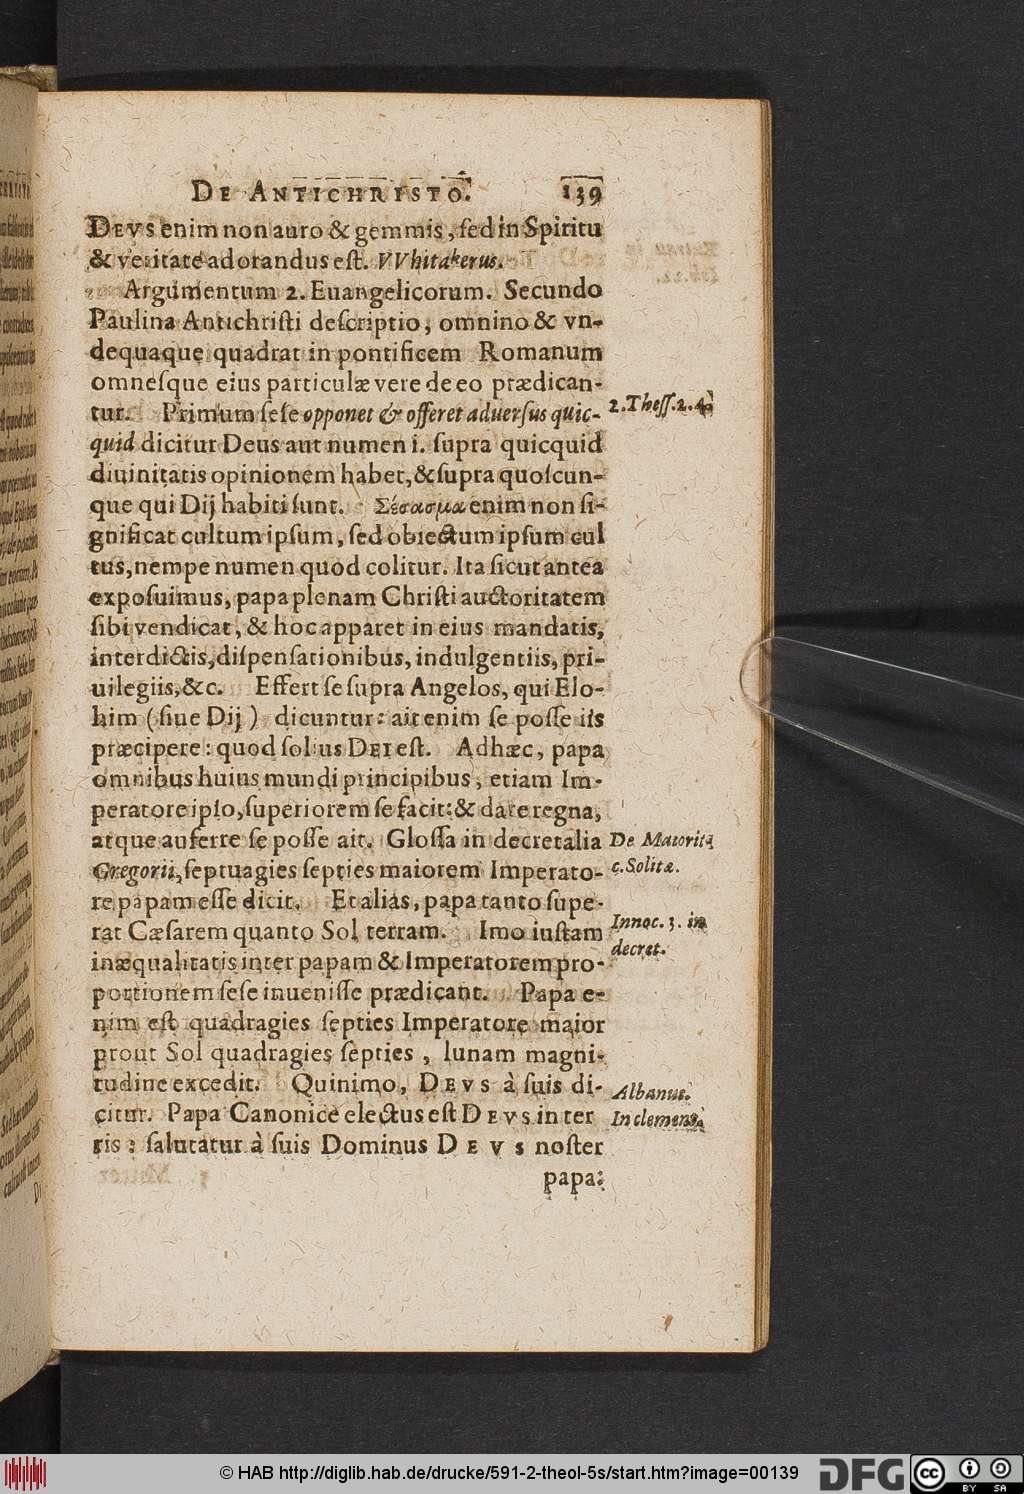 DE ANTICHRISTO. 139
DEVS enim non auro & gemmis, ſed in Spiritu
& veritate adorandus eſt. VVhitakerus.
Argumentum 2. Euangelicorum. Secundo
Paulina Antichriſti deſcriptio, omnino & vn-
dequaque quadrat in pontificem Romanum
omneſque eius particulæ vere de eo prædican-
tur. Primum ſeſe opponet & offeret aduerſus quic-
2.Theſſ.2.4.
quid dicitur Deus aut numen i. ſupra quicquid
diuinitatis opinionem habet, & ſupra quoſcun-
que qui Dij habiti ſunt. Σέϐασμα enim non ſi-
gnificat cultum ipſum, ſed obiectum ipſum cul
tus, nempe numen quod colitur. Ita ſicut antea
expoſuimus, papa plenam Chriſti auctoritatem
ſibi vendicat, & hoc apparet in eius mandatis,
interdictis, diſpenſationibus, indulgentiis, pri-
uilegiis, &c. Effert ſe ſupra Angelos, qui Elo-
him (ſiue Dij) dicuntur: ait enim ſe poſſe iis
præcipere: quod ſolius DEI eſt. Adhæc, papa
omnibus huius mundi principibus, etiam Im-
peratore ipſo, ſuperiorem ſe facit: & dare regna,
atque auferre ſe poſſe ait. Gloſſa in decretalia
De Maiorit.
Gregorii, ſeptuagies ſepties maiorem Imperato-
c. Solitæ.
re papam eſſe dicit. Et alias, papa tanto ſupe-
rat Cæſarem quanto Sol terram. Imo iuſtam
Innoc. 3. in
inæqualitatis inter papam & Imperatorem pro-
decret.
portionem ſeſe inueniſſe prædicant. Papa e-
nim eſt quadragies ſepties Imperatore maior
prout Sol quadragies ſepties, lunam magni-
tudine excedit. Quinimo, DEVS à ſuis di-
Albanus.
citur. Papa Canonice electus eſt DEVS in ter
In clemens.
ris: ſalutatur à ſuis Dominus DEVS noſter
papa:
© HAB http://diglib.hab.de/drucke/591-2-theol-5s/start.htm?image=00139
DFG
cc
BY SA